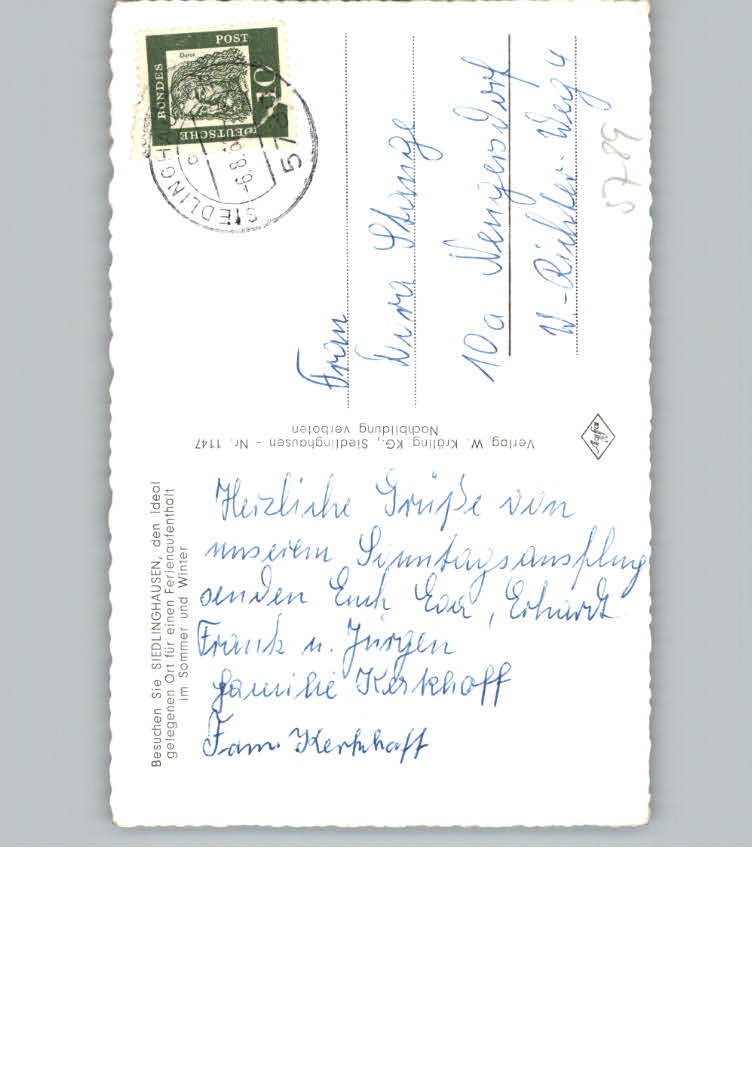 Besuchen Sie SIEDLINGHAUSEN, den Ideal
gelegenen Ort für einen Ferienaufenthalt
im Sommer und Winter
Herzliche Grüße von
unserem Sonntagsausflug
senden Euch Eva, Erhardt
Frank u. Jürgen
Familie Kerkhoff
Fam. Kerkhoff
Verlag W. Kräling KG., Siedlinghausen - Nr. 1147
Nachbildung verboten
Agfa
DEUTSCHE
BUNDES
POST
Dürer
10
SIEDLINGH
57
Frau
Stange
10a Neugersdorf
W-Richter-Weg 4
5789